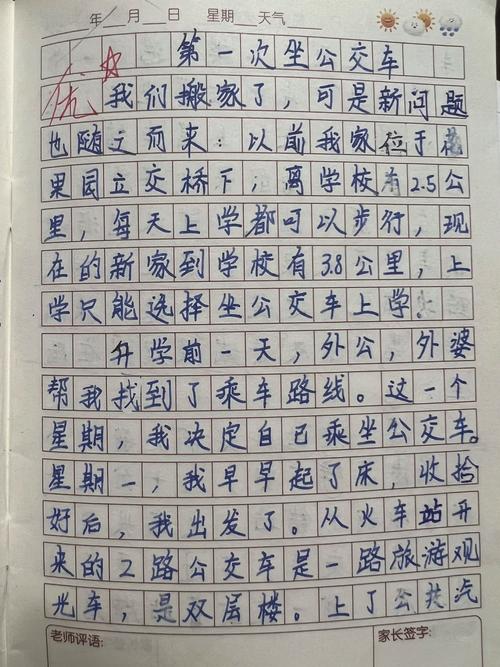 年 月 日 星期 天气
第一次坐公交车
优
我们搬家了，可是新问题
也随之而来：以前我家位于花
果园立交桥下，离学校有2.5公
里，每天上学都可以步行，现
在的新家到学校有3.8公里，上
学只能选择坐公交车上学。
升学前一天，外公，外婆
帮我找到了乘车路线。过一个
星期，我决定自己乘坐公交车。
星期一，我早早起了床，收拾
好后，我出发了。从火车站开
来的2路公交车是一路旅游观
光车，是双层楼。上了公共汽
老师评语： 家长签字：